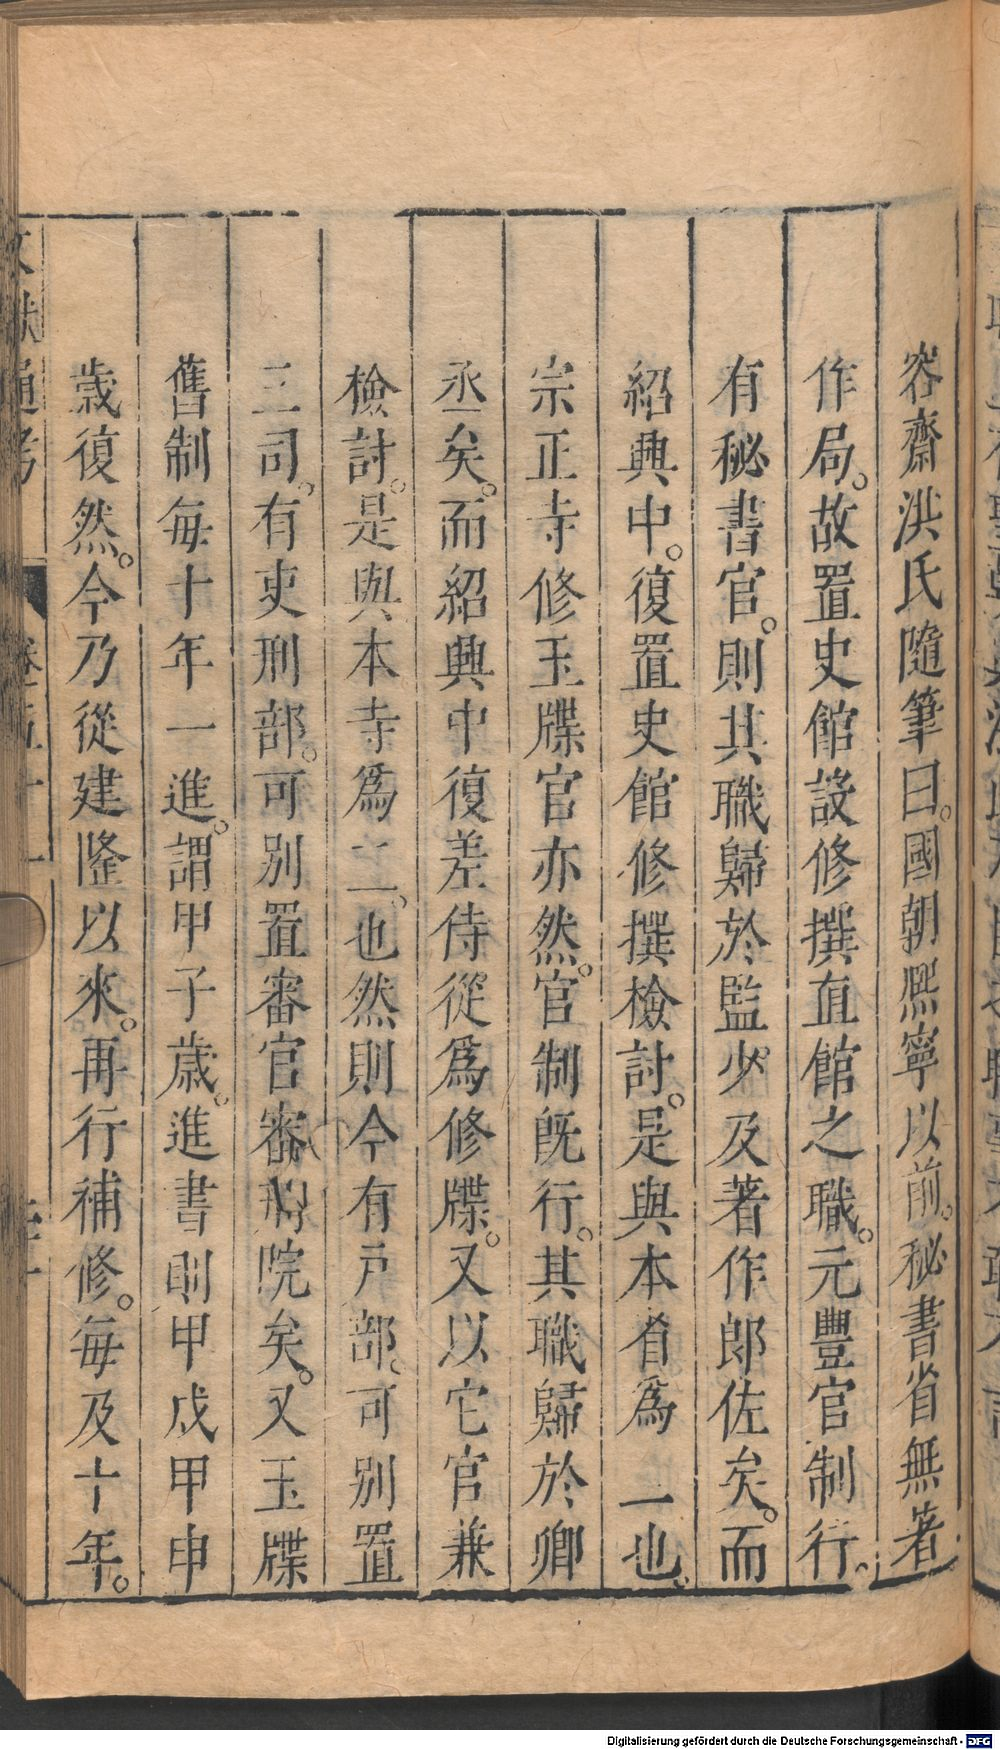 容齋洪氏隨筆曰。國朝熈寧以前。秘書省無著
作局。故置史館設修撰直館之職。元豐官制行。
有秘書官。則其職歸於監少及著作郎佐矣。而
紹興中。復置史館修撰檢討。是與本省爲一也。
宗正寺修玉牒官亦然。官制旣行。其職歸於卿
丞矣。而紹興中復差侍從爲修牒。又以它官兼
檢討。是與本寺爲二。也然則今有戸部。可別置
三司。有吏刑部。可別置審官審刑院矣。又玉牒
舊制每十年一進。謂甲子歲。進書則甲戌甲申
歲復然。今乃從建隆以來。再行補修。每及十年。
文獻通考 卷五十一
Digitalisierung gefördert durch die Deutsche Forschungsgemeinschaft - DFG